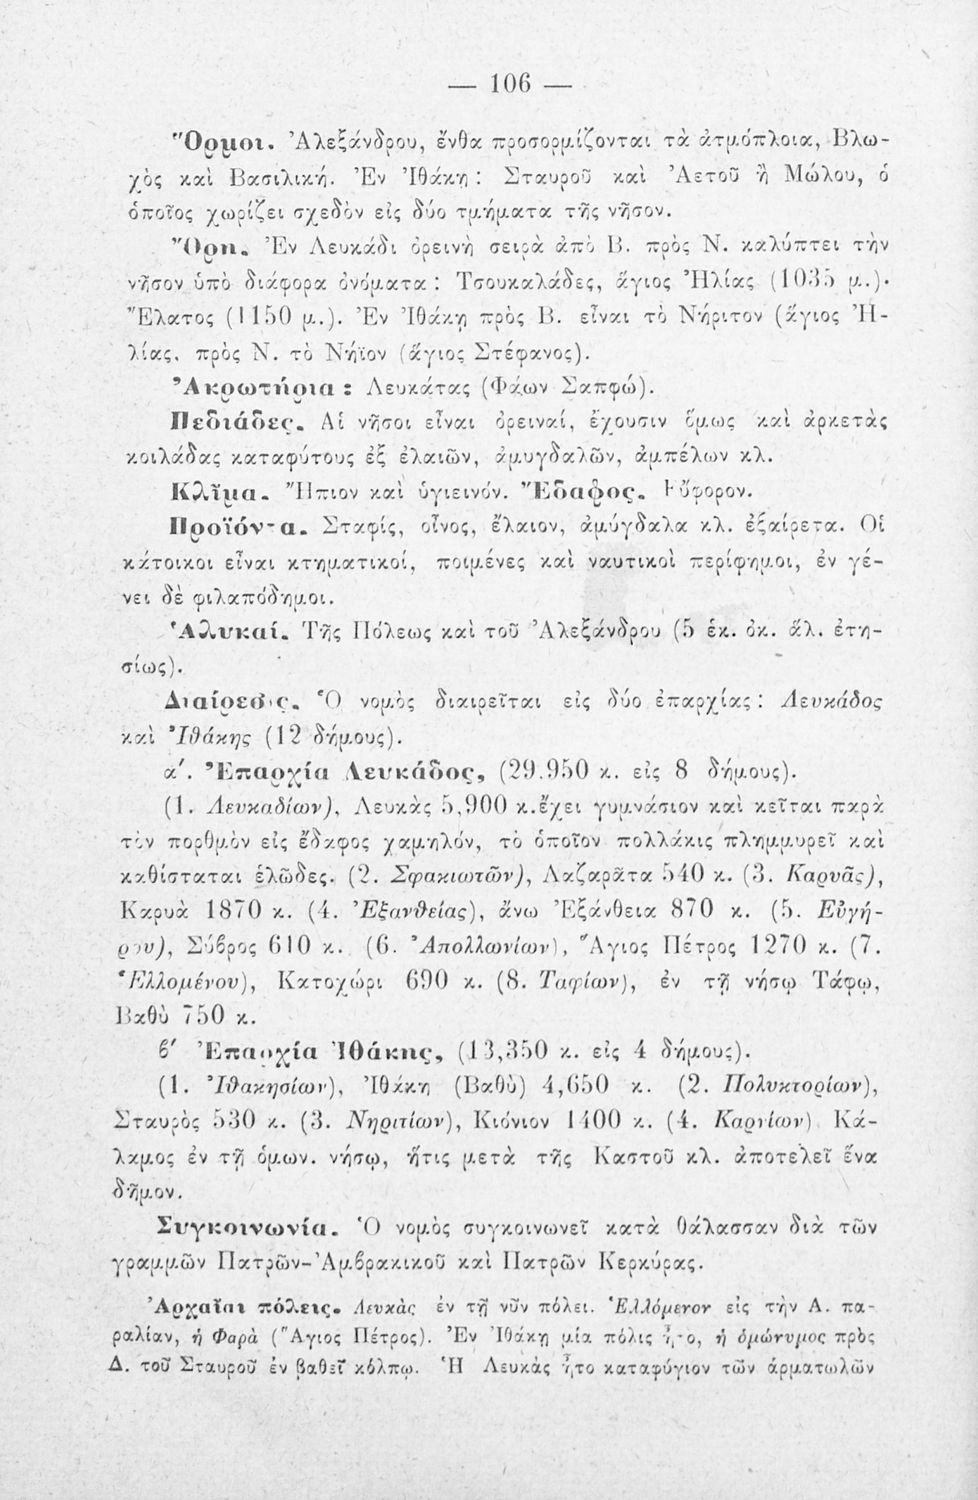 — 106 —
Ὅρμοι. Ἀλεξάνδρου, ἔνθα προσορμίζονται τὰ ἀτμόπλοια, Βλω-
χὸς καὶ Βασιλική. Ἐν Ἰθάκῃ : Σταυροῦ καὶ Ἀετοῦ ἢ Μώλου, ὁ
ὁποῖος χωρίζει σχεδὸν εἰς δύο τμήματα τῆς νῆσον.
Ὄρη. Ἐν Λευκάδι ὀρεινὴ σειρὰ ἀπὸ Β. πρὸς Ν. καλύπτει τὴν
νῆσον ὑπὸ διάφορα ὀνόματα : Τσουκαλάδες, ἅγιος Ἠλίας (1035 μ.).
Ἔλατος (1150 μ.). Ἐν Ἰθάκῃ πρὸς Β. εἶναι τὸ Νήριτον (ἅγιος Ἠ-
λίας, πρὸς Ν. τὸ Νήϊον (ἅγιος Στέφανος).
Ἀκρωτήρια : Λευκάτας (Φάων Σαπφώ).
Πεδιάδες. Αἱ νῆσοι εἶναι ὀρειναί, ἔχουσιν ὅμως καὶ ἀρκετὰς
κοιλάδας καταφύτους ἐξ ἐλαιῶν, ἀμυγδαλῶν, ἀμπέλων κλ.
Κλῖμα. Ἤπιον καὶ ὑγιεινόν. Ἔδαφος. Εὔφορον.
Προϊόντα. Σταφίς, οἶνος, ἔλαιον, ἀμύγδαλα κλ. ἐξαίρετα. Οἱ
κάτοικοι εἶναι κτηματικοί, ποιμένες καὶ ναυτικοὶ περίφημοι, ἐν γέ-
νει δὲ φιλαπόδημοι.
Ἁλυκαί. Τῆς Πόλεως καὶ τοῦ Ἀλεξάνδρου (5 ἑκ. ὀκ. ἅλ. ἐτη-
σίως).
Διαίρεσις. Ὁ νομὸς διαιρεῖται εἰς δύο ἐπαρχίας : Λευκάδος
καὶ Ἰθάκης (12 δήμους).
α'. Ἐπαρχία Λευκάδος, (29.950 κ. εἰς 8 δήμους).
(1. Λευκαδίων), Λευκὰς 5,900 κ. ἔχει γυμνάσιον καὶ κεῖται παρὰ
τὸν πορθμὸν εἰς ἔδαφος χαμηλόν, τὸ ὁποῖον πολλάκις πλημμυρεῖ καὶ
καθίσταται ἑλῶδες. (2. Σφακιωτῶν), Λαζαρᾶτα 540 κ. (3. Καρυᾶς),
Καρυὰ 1870 κ. (4. Ἐξανθείας), ἄνω Ἐξάνθεια 870 κ. (5. Εὐγή-
ρου), Σύβρος 610 κ. (6. Ἀπολλωνίων), Ἅγιος Πέτρος 1270 κ. (7.
Ἑλλομένου), Κατοχώρι 690 κ. (8. Ταφίων), ἐν τῇ νήσῳ Τάφῳ,
Βαθὺ 750 κ.
β' Ἐπαρχία Ἰθάκης, (13,350 κ. εἰς 4 δήμους).
(1. Ἰθακησίων), Ἰθάκη (Βαθὺ) 4,650 κ. (2. Πολυκτορίων),
Σταυρὸς 530 κ. (3. Νηριτίων), Κιόνιον 1400 κ. (4. Καρνίων) Κά-
λαμος ἐν τῇ ὁμων. νήσῳ, ἥτις μετὰ τῆς Καστοῦ κλ. ἀποτελεῖ ἕνα
δῆμον.
Συγκοινωνία. Ὁ νομὸς συγκοινωνεῖ κατὰ θάλασσαν διὰ τῶν
γραμμῶν Πατρῶν-Ἀμβρακικοῦ καὶ Πατρῶν Κερκύρας.
Ἀρχαῖαι πόλεις. Λευκὰς ἐν τῇ νῦν πόλει. Ἑλλόμενον εἰς τὴν Α. πα-
ραλίαν, ἡ Φαρὰ (Ἅγιος Πέτρος). Ἐν Ἰθάκῃ μία πόλις ἦτο, ἡ ὁμώνυμος πρὸς
Δ. τοῦ Σταυροῦ ἐν βαθεῖ κόλπῳ. Ἡ Λευκὰς ἦτο καταφύγιον τῶν ἁρματωλῶν